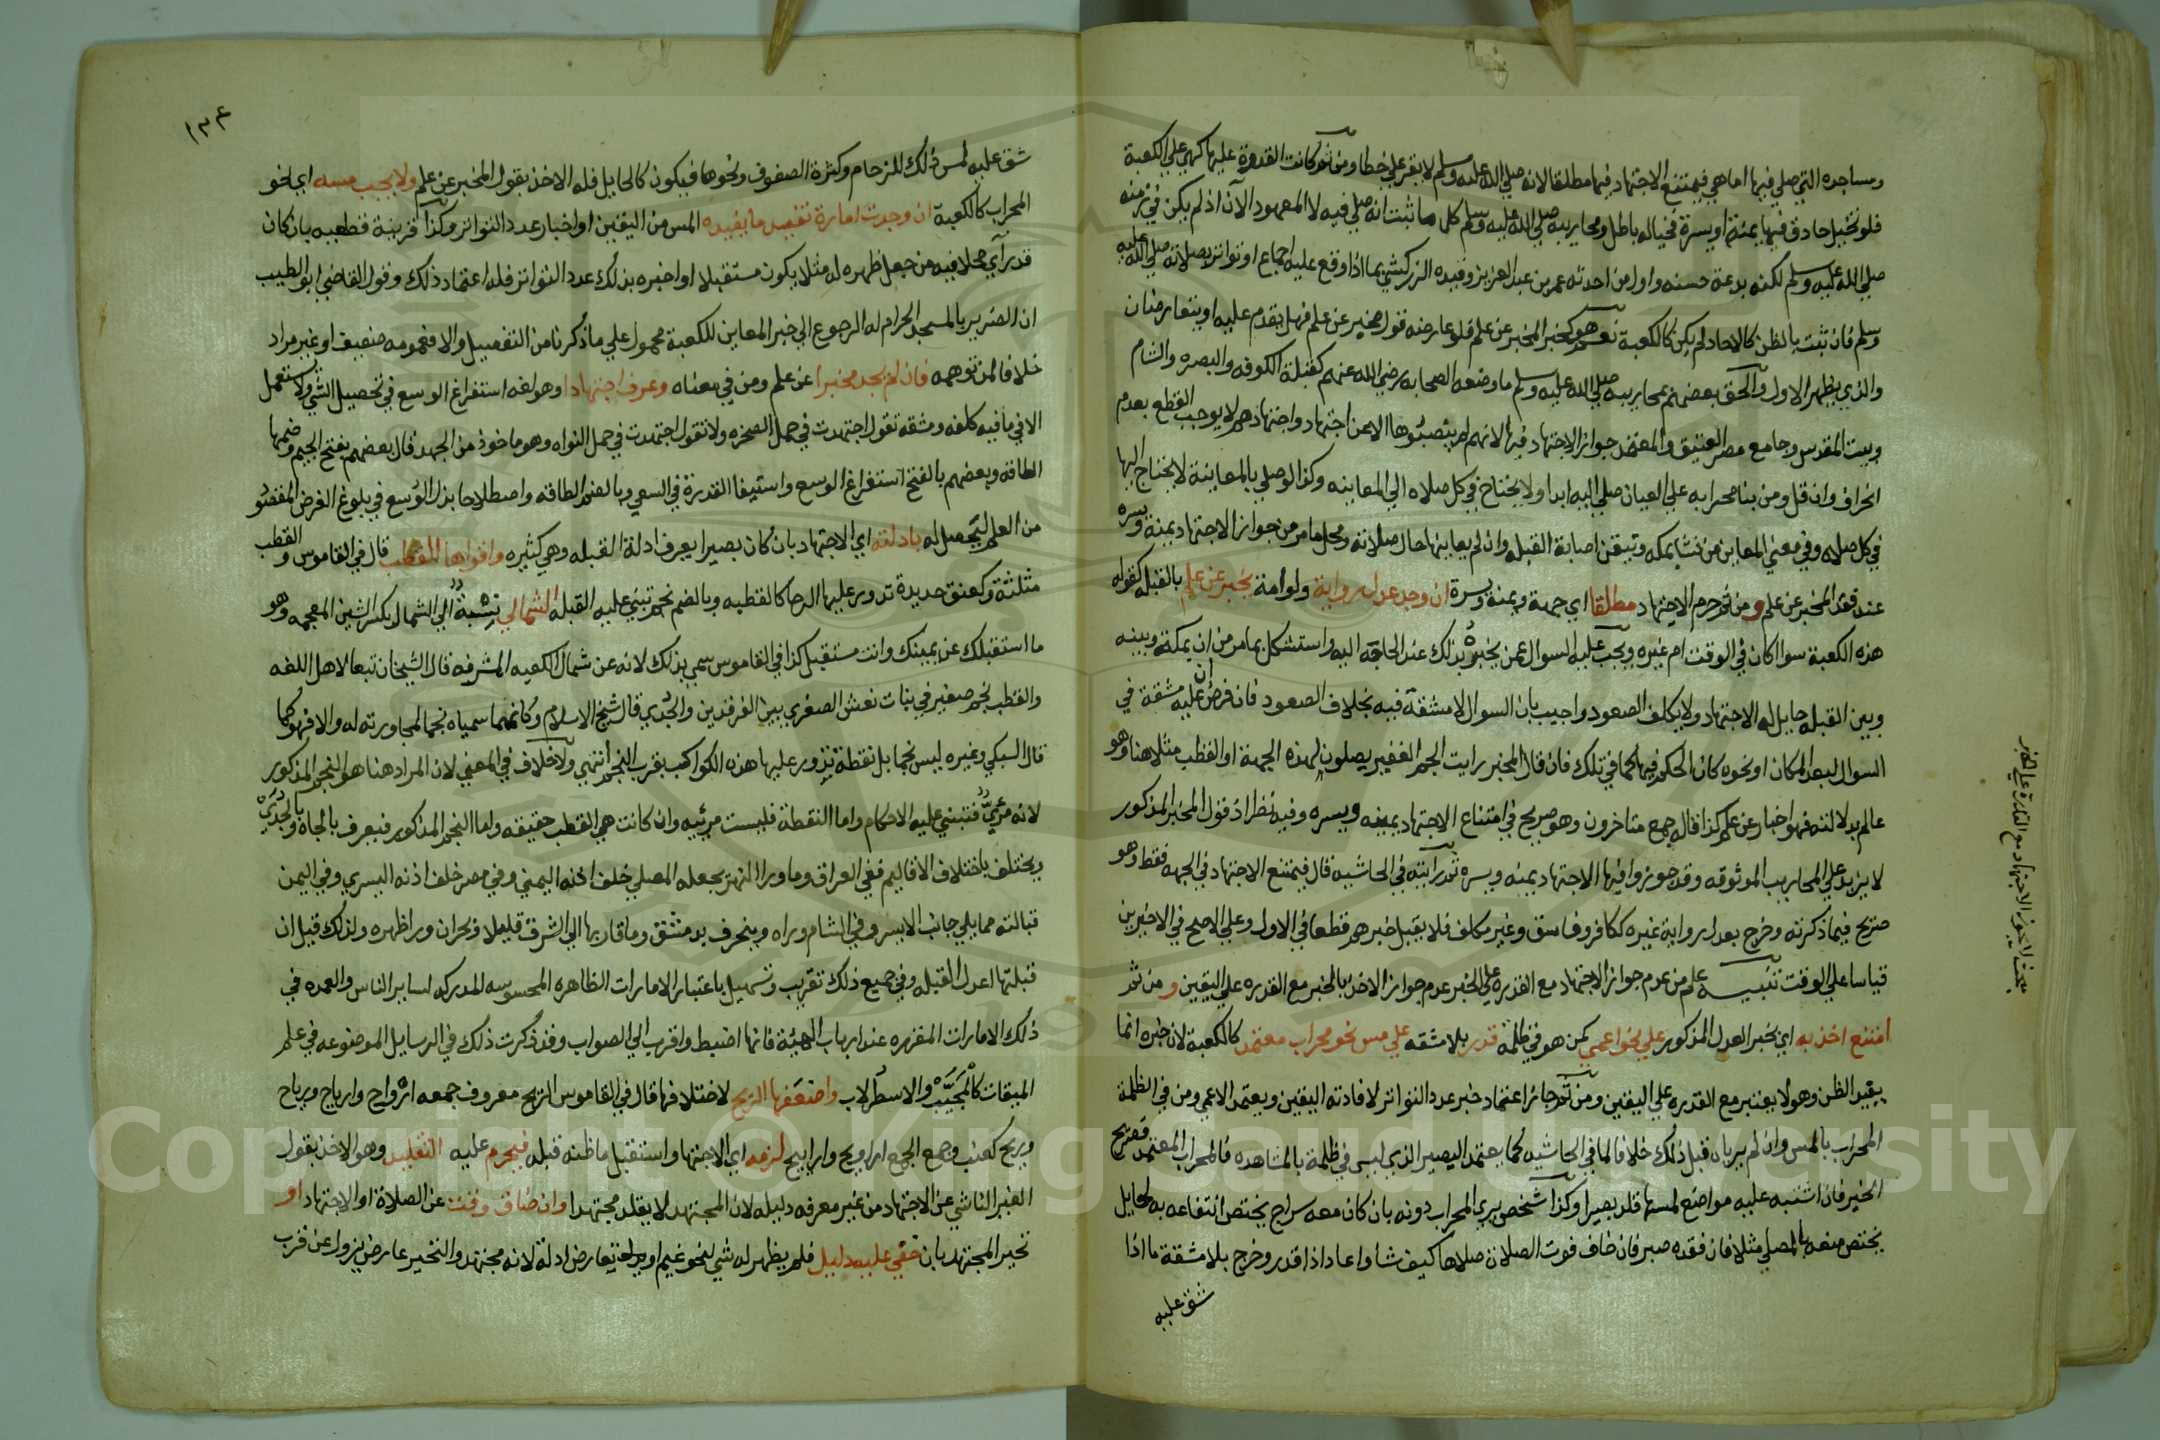 ومساجده التي صلي فيها اما هي فيمتنع الاجتهاد فيها مطلقا لانه صلي الله عليه وسلم لا يقر علي خطا ومن ثم كانت القدرة عليها كهي علي الكعبة
فلو تخيل حاذق فيها يمنة او يسرة فخياله باطل ومحاريبه صلي الله عليه وسلم كل ما ثبت انه صلي فيه لا المعهود الآن اذ لم يكن في زمنه
صلي الله عليه وسلم لكنه بدعة حسنه واول من احدثه عمر بن عبد العزيز وقيده الزركشي بما اذا وقع عليه اجماع او تواتر بصلاته صلي الله عليه
وسلم فان ثبت بالظن كالاحاد لم يكن كالكعبة نعم هو كخبر المخبر عن علم فلو عارضه قول مخبر عن علم فهل يقدم عليه او يتعارضان
والذي يظهر الاول والحق بعضهم بمحاريبه صلي الله عليه وسلم ما وضعه الصحابه رضي الله عنهم كقبلة الكوفه والبصره والشام
وبيت المقدس وجامع مصر العتيق والمعتمد جواز الاجتهاد فيها لانهم لم ينصبوها الا عن اجتهاد واجتهادهم لا يوجب القطع بعدم
انحراف وان قل ومن بنا محرابه علي العيان صلي اليه ابدا ولا يحتاج في كل صلاه الي المعاينه وكذا لو صلي بالمعاينة لا يحتاج اليها
في كل صلاه وفي معني المعاين من نشا بمكه وتيقن اصابة القبله وان لم يعاينها حال صلاته ومحل ما مر من جواز الاجتهاد يمنة ويسره
عند فقد المخبر عن علم ومن ثم حرم الاجتهاد مطلقا اي جهة ويمنة ويسرة ان وجد عدل رواية ولو امة يخبر عن علم بالقبله كقوله
هذه الكعبة سوا كان في الوقت ام غيره ويجب عليه السوال عمن يخبره بذلك عند الحاجه اليه واستشكل بما مر من ان يمكة وبينه
وبين القبله حايل له الاجتهاد ولا يكلف الصعود واجيب بان السوال لا مشقة فيه بخلاف الصعود فان فرض ان عليه مشقة في
السوال لبعد المكان او نحوه كان الحكم فيها كما في تلك فان قال المخبر رايت الجم الغفير يصلون لهذه الجهة او القطب مثلا هنا وهو
عالم بدلالته فهو اخبار عن علم كذا قاله جمع متاخرون وهو صريح في امتناع الاجتهاد يمينه ويسره وفيه نظر اذ قول المخبر المذكور
لا يزيد علي المحاريب الموثوقه وقد جوزوا فيها الاجتهاد يمينه ويسره ثم رايته في الحاشيه قال فيمتنع الاجتهاد في الجهه فقط وهو
صريح فيما ذكرته وخرج بعدل رواية غيره ككافر وفاسق وغير مكلف فلا يقبل خبرهم قطعا في الاول وعلي الاصح في الاخيرين
قياسا علي الوقت تنبيه علم من عدم جواز الاجتهاد مع القدره علي الخبر عدم جواز الاخذ بالخبر مع القدره علي اليقين ومن ثم
امتنع اخذ به اي بخبر العدل المذكور علي نحو اعمي كمن هو في ظلمه قدر بلا مشقه علي مس نحو محراب معتمد كالكعبة لان خبره انما
يفيد الظن وهو لا يعتبر مع القدره علي اليقين ومن ثم جاز اعتماد خبر عدد التواتر لافادته اليقين ويعتمد الاعمي ومن في الظلمة
المحراب بالمس وان لم يريان قبل ذلك خلافا لما في الحاشيه كما يعتمد البصير الذي ليس في ظلمة بالمشاهده فالمحراب المعتمد فصريح
الخبر فان اشتبه عليه مواضع لمسها قلد بصيرا وكذا شخص يري المحراب دونه بان كان معه سراج يختص انتفاعه به لحايل
يختص منعه بالمصلي مثلا فان فقده صبر فان خاف فوت الصلاة صلاها كيف شا واعاد اذا قدر وخرج بلا مشقة ما اذا
شق عليه
مبحث لا يجوز الاجتهاد مع القدرة علي الخبر
١٣٤
شق عليه لمس ذلك للزحام وكثرة الصفوف ونحوها فيكون كالحايل فله الاخذ بقول المخبر عن علم ولا يجب مسه اي نحو
المحراب كالكعبة ان وجدت امارة تفيد ما يفيده المس من اليقين او اخبار عدد التواتر وكذا قرينة قطعيه بان كان
قد راي محلا فيه من جعل ظهره له مثلا يكون مستقبلا او اخبره بذلك عدد التواتر فله اعتماد ذلك وقول القاضي ابو الطيب
ان الضرير بالمسجد الحرام له الرجوع الي خبر المعاين للكعبة محمول علي ما ذكرنا من التفصيل والا فعمومه ضعيف او غير مراد
خلافا لمن توهمه فان لم يجد مخبرا عن علم ومن في معناه وعرف اجتهادا وهو لغه استفراغ الوسع في تحصيل الشي ولا يستعمل
الا في ما فيه كلفه ومشقه تقول اجتهدت في حمل الصخره ولا تقول اجتهدت في حمل النواه وهو ماخوذ من الجهد قال بعضهم بفتح الجيم وضمها
الطاقه وبعضهم بالفتح استفراغ الوسع واستيفا القدرة في السعي وبالضم الطاقه واصطلاحا بذل الوسع في بلوغ الغرض المقصود
من العلم ليحصل له بادلته اي الاجتهاد بان كان بصيرا يعرف ادلة القبله وهي كثيره واقواها القطب قال في القاموس والقطب
مثلثة وكعنق حديدة تدور عليها الرحا كالقطبه وبالضم نجم تبني عليه القبله الشمالي نسبة الي الشمال بكسر الشين المعجمه وهو
ما استقبلك عن يمينك وانت مستقبل كذا في القاموس سمي بذلك لانه عن شمال الكعبه المشرفه قال الشيخان تبعا لاهل اللغه
والقطب نجم صغير في بنات نعش الصغري بين الفرقدين والجدي قال شيخ الاسلام وكانهما سمياه نجما لمجاورته له والا فهو كما
قال السبكي وغيره ليس نجما بل نقطة تدور عليها هذه الكواكب بقرب النجم انتهي ولا خلاف في المعني لان المراد هنا هو النجم المذكور
لانه مرئي فتبتني عليه الاحكام واما النقطة فليست مرئيه وان كانت هي القطب حقيقه واما النجم المذكور فيعرف بالجاه والجدي
ويختلف باختلاف الاقاليم ففي العراق وما ورا النهر يجعله المصلي خلف اذنه اليمني وفي مصر خلف اذنه اليسري وفي اليمن
قبالته مما يلي جانبه الايسر وفي الشام وراه وينحرف بدمشق وما قاربها الي الشرق قليلا وبحران ورا ظهره ولذلك قيل ان
قبلتها اعدل القبله وفي جميع ذلك تقريب وتسهيل باعتبار الامارات الظاهره المحسوسه المدركه لساير الناس والعمده في
ذلك الامارات المقرره عند ارباب الهيئة فانها اضبط واقرب الي الصواب وقد ذكرت ذلك في الرسايل الموضوعه في علم
الميقات كالمجيب والاسطرلاب واضعفها الريح لاختلافها قال في القاموس الريح معروف جمعه ارواح وارياح ورياح
وريح كعنب وجمع الجمع اراويح واراييح لزمه اي الاجتهاد واستقبل ما ظنه قبله فيحرم عليه التقليد وهو الاخذ بقول
الغير الناشي عن الاجتهاد من غير معرفه دليله لان المجتهد لا يقلد مجتهدا وان ضاق وقت عن الصلاة او الاجتهاد او
تحير المجتهد بان خفي عليه دليل فلم يظهر له شي لنحو غيم او تعارض ادلة لانه مجتهد والتحير عارض يزول عن قرب
Copyright © King Saud University